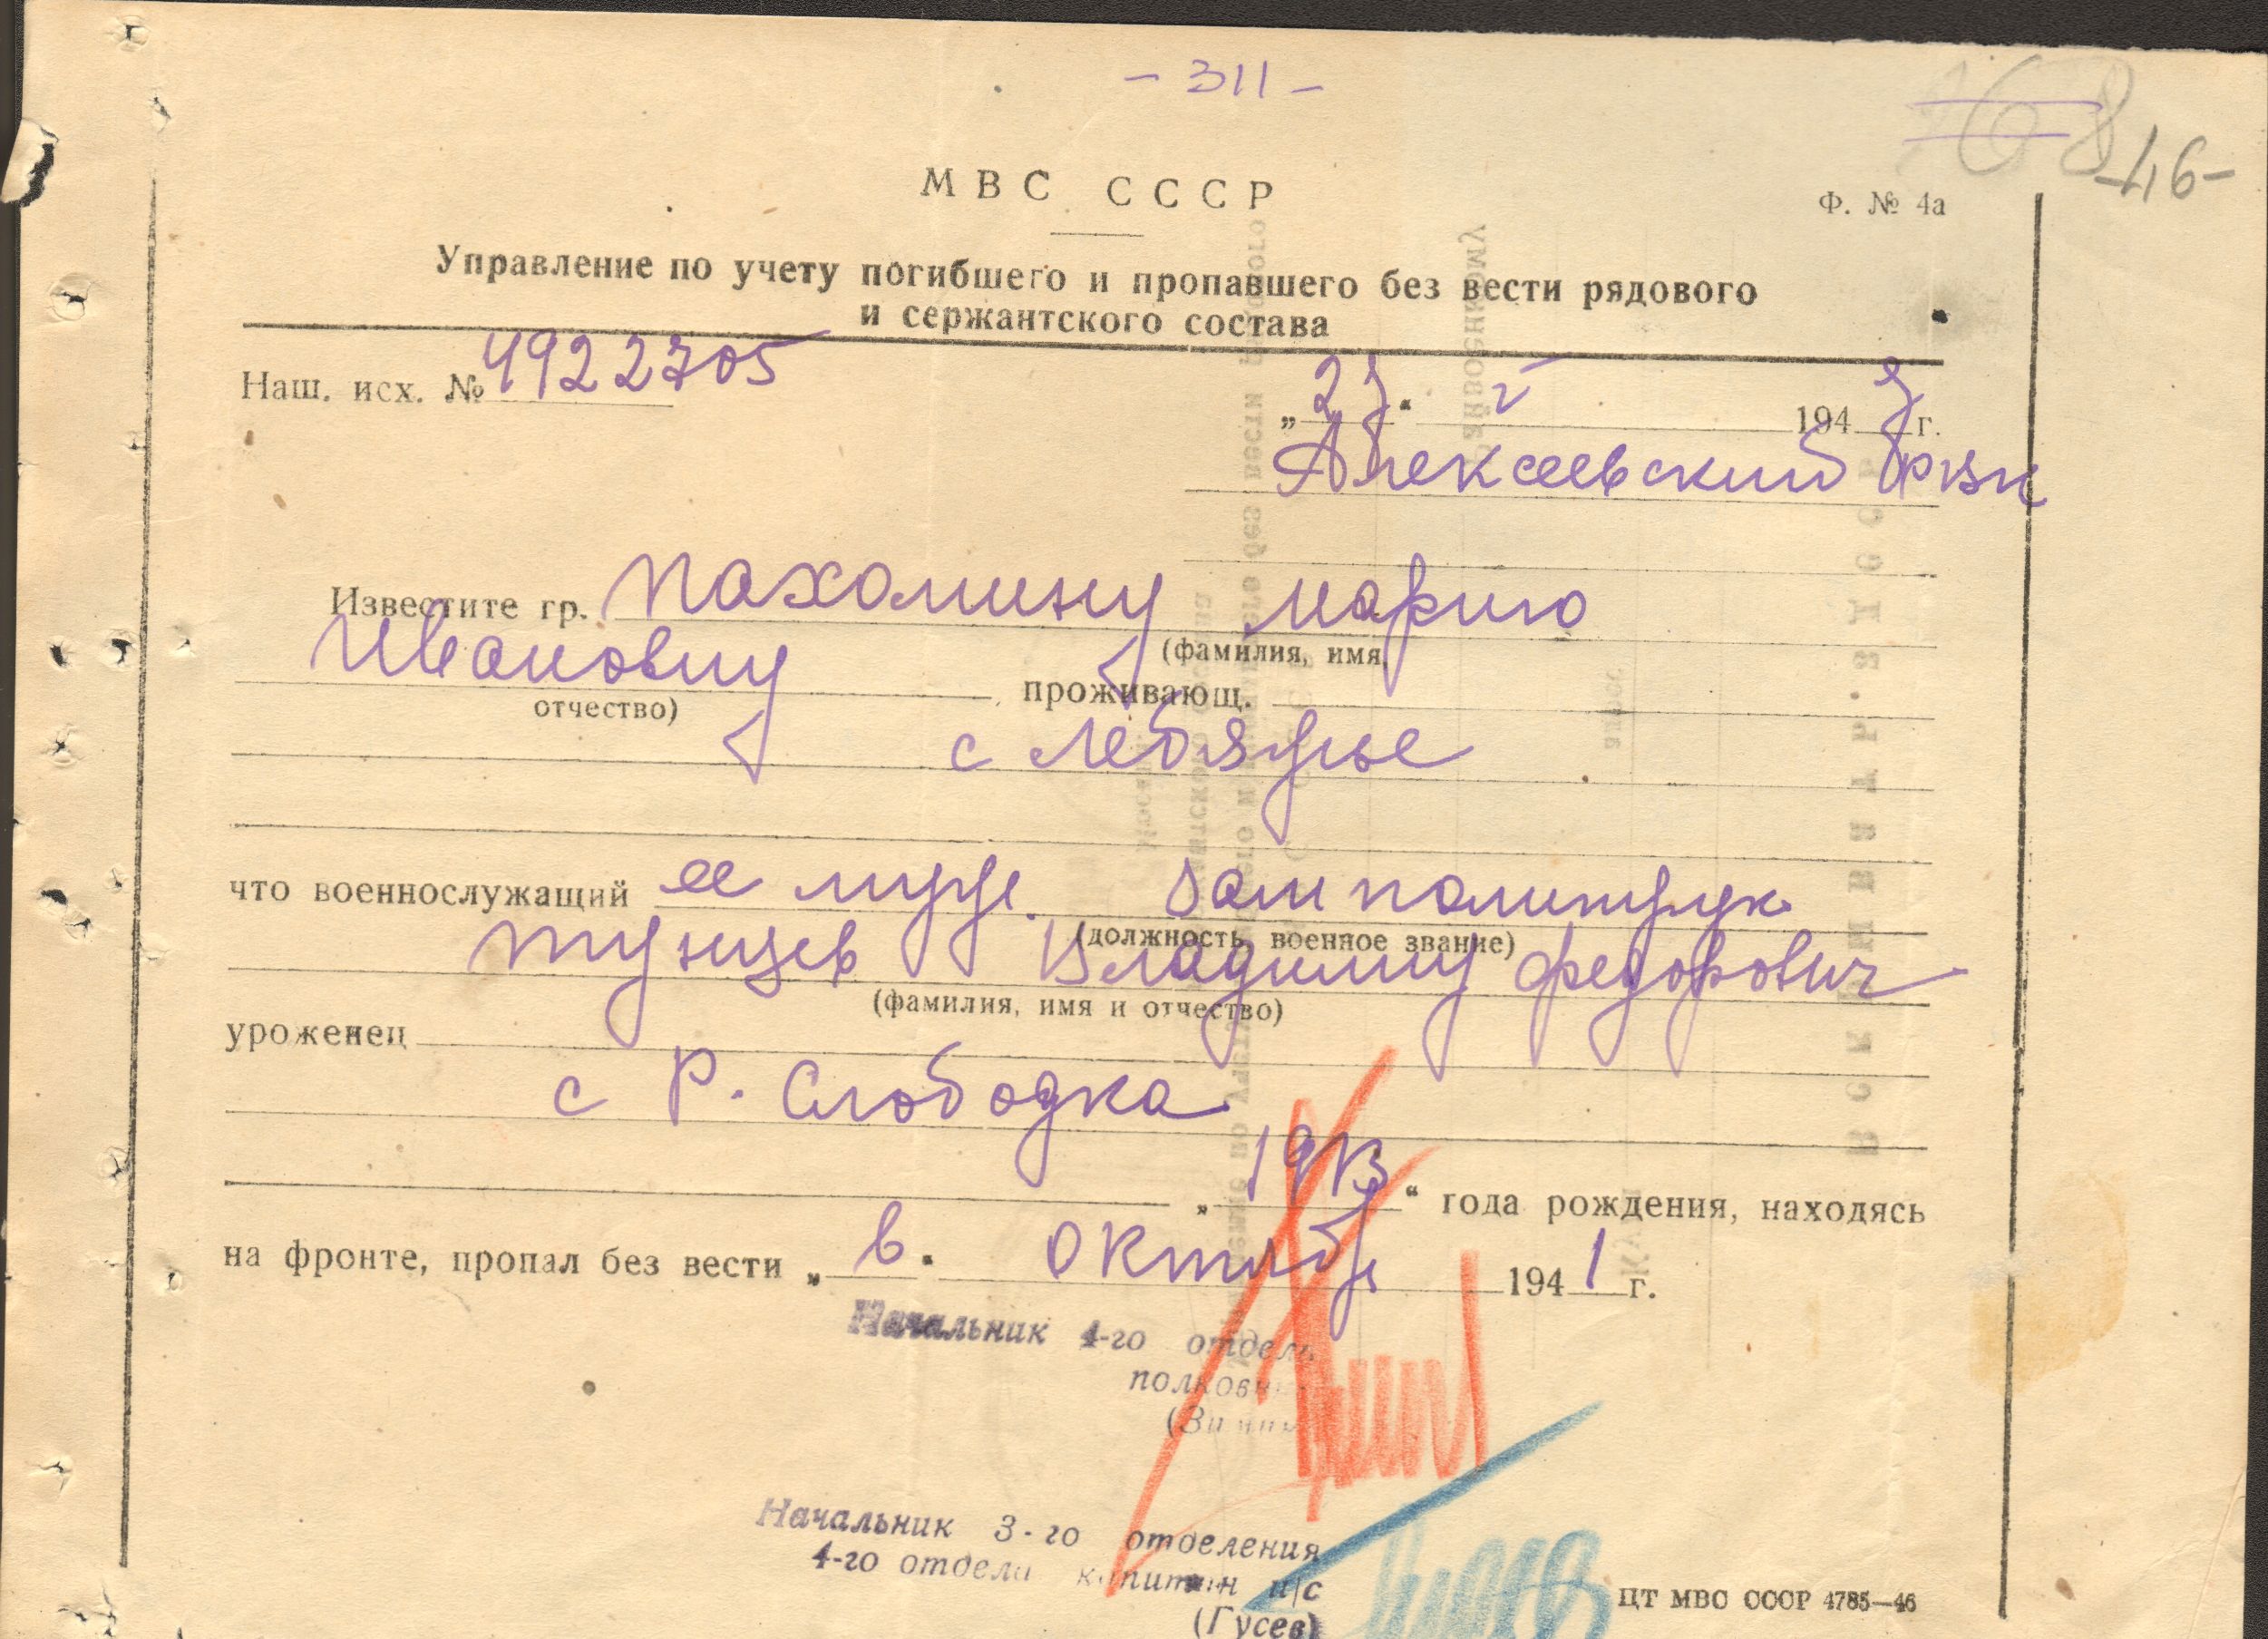 - 311 -
68
-46-
МВС СССР
Ф. № 4а
Управление по учету погибшего и пропавшего без вести рядового
и сержантского состава
Наш. исх. № 4922705
194 г.
Алексеевский РВК
Известите гр. Пахомину Марию
(фамилия, имя,
Ивановну проживающ.
отчество)
с Лебяжье
что военнослужащий ее муж. Зам политрук
(должность, военное звание)
Тунцев Владимир Федорович
(фамилия, имя и отчество)
уроженец
с Р. Слободка
„ 1913 “ года рождения, находясь
на фронте, пропал без вести „ в “ Октябр 1941 г.
Начальник 4-го отдела
полковник
Начальник 3-го отделения
4-го отдела капитан и/с
(Гусев)
ЦТ МВС СССР 4785—46